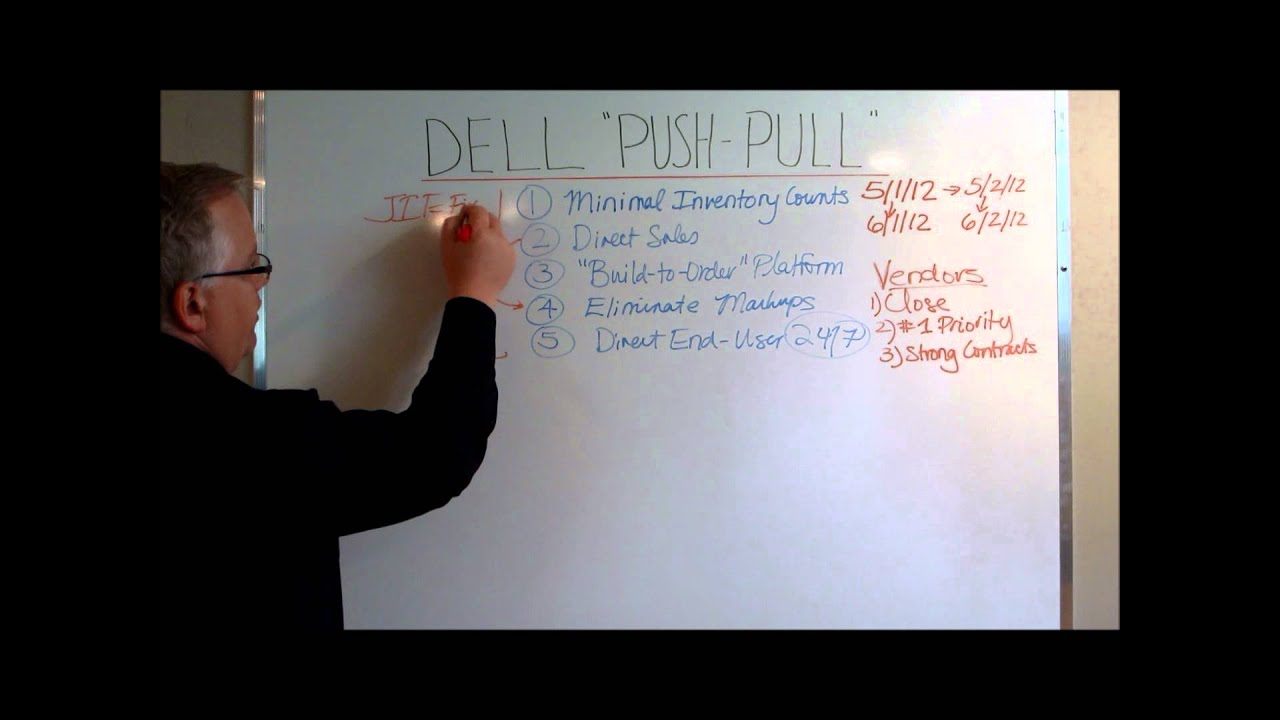 DELL "PUSH-PULL"
① Minimal Inventory Counts
② Direct Sales
③ "Build-to-Order" Platform
④ Eliminate Markups
⑤ Direct End-User 24/7
5/1/12 → 5/2/12
6/1/12 6/2/12
Vendors
1) Close
2) #1 Priority
3) Strong Contracts